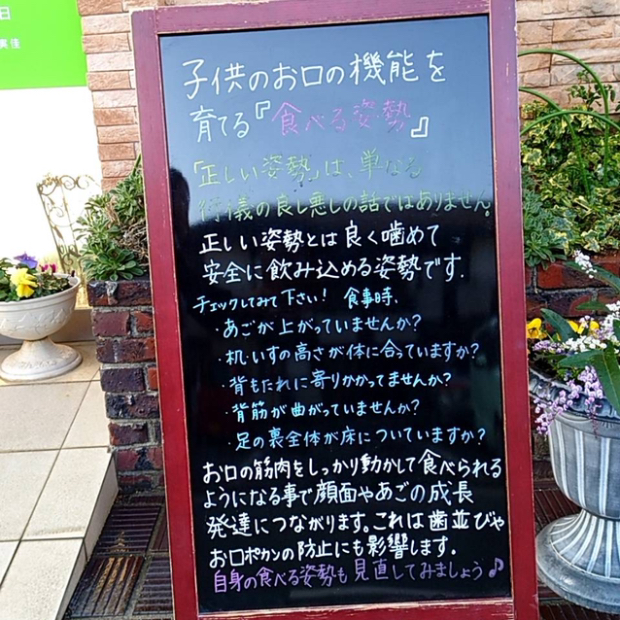 日
美佳
子供のお口の機能を
育てる『食べる姿勢』
「正しい姿勢」は、単なる
行儀の良し悪しの話ではありません。
正しい姿勢とは良く噛めて
安全に飲み込める姿勢です.
チェックしてみて下さい! 食事時、
・あごが上がっていませんか?
・机・いすの高さが体に合っていますか?
・背もたれに寄りかかってませんか?
・背筋が曲がっていませんか?
・足の裏全体が床についていますか?
お口の筋肉をしっかり動かして食べられる
ようになる事で顔面やあごの成長
発達につながります。これは歯並びや
お口ポカンの防止にも影響します.
自身の食べる姿勢も見直してみましょう♪